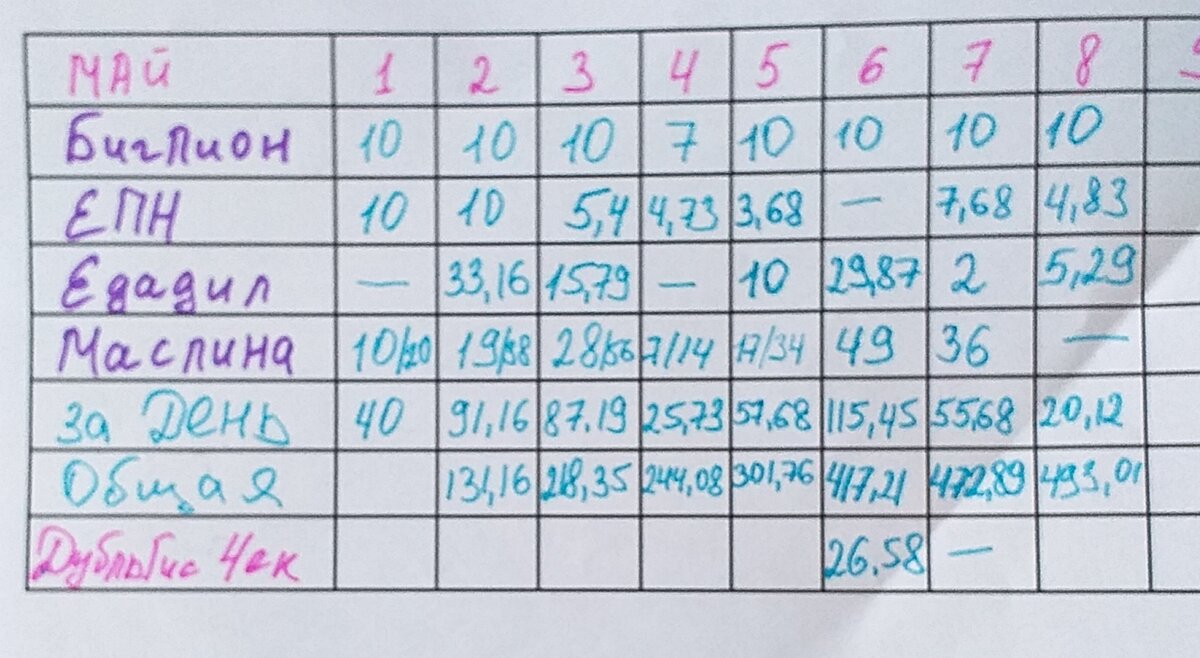 МАЙ 1 2 3 4 5 6 7 8
Биглион 10 10 10 7 10 10 10 10
ЕПН 10 10 5,4 4,73 3,68 — 7,68 4,83
Едадил — 33,16 15,79 — 10 29,87 2 5,29
Маслина 10/20 19/38 28/56 7/14 17/34 49 36 —
за День 40 91,16 87.19 25,73 57,68 115,45 55,68 20,12
Общая 131,16 218,35 244,08 301,76 417,21 472,89 493,01
ДубльГис Чек 26.58 —